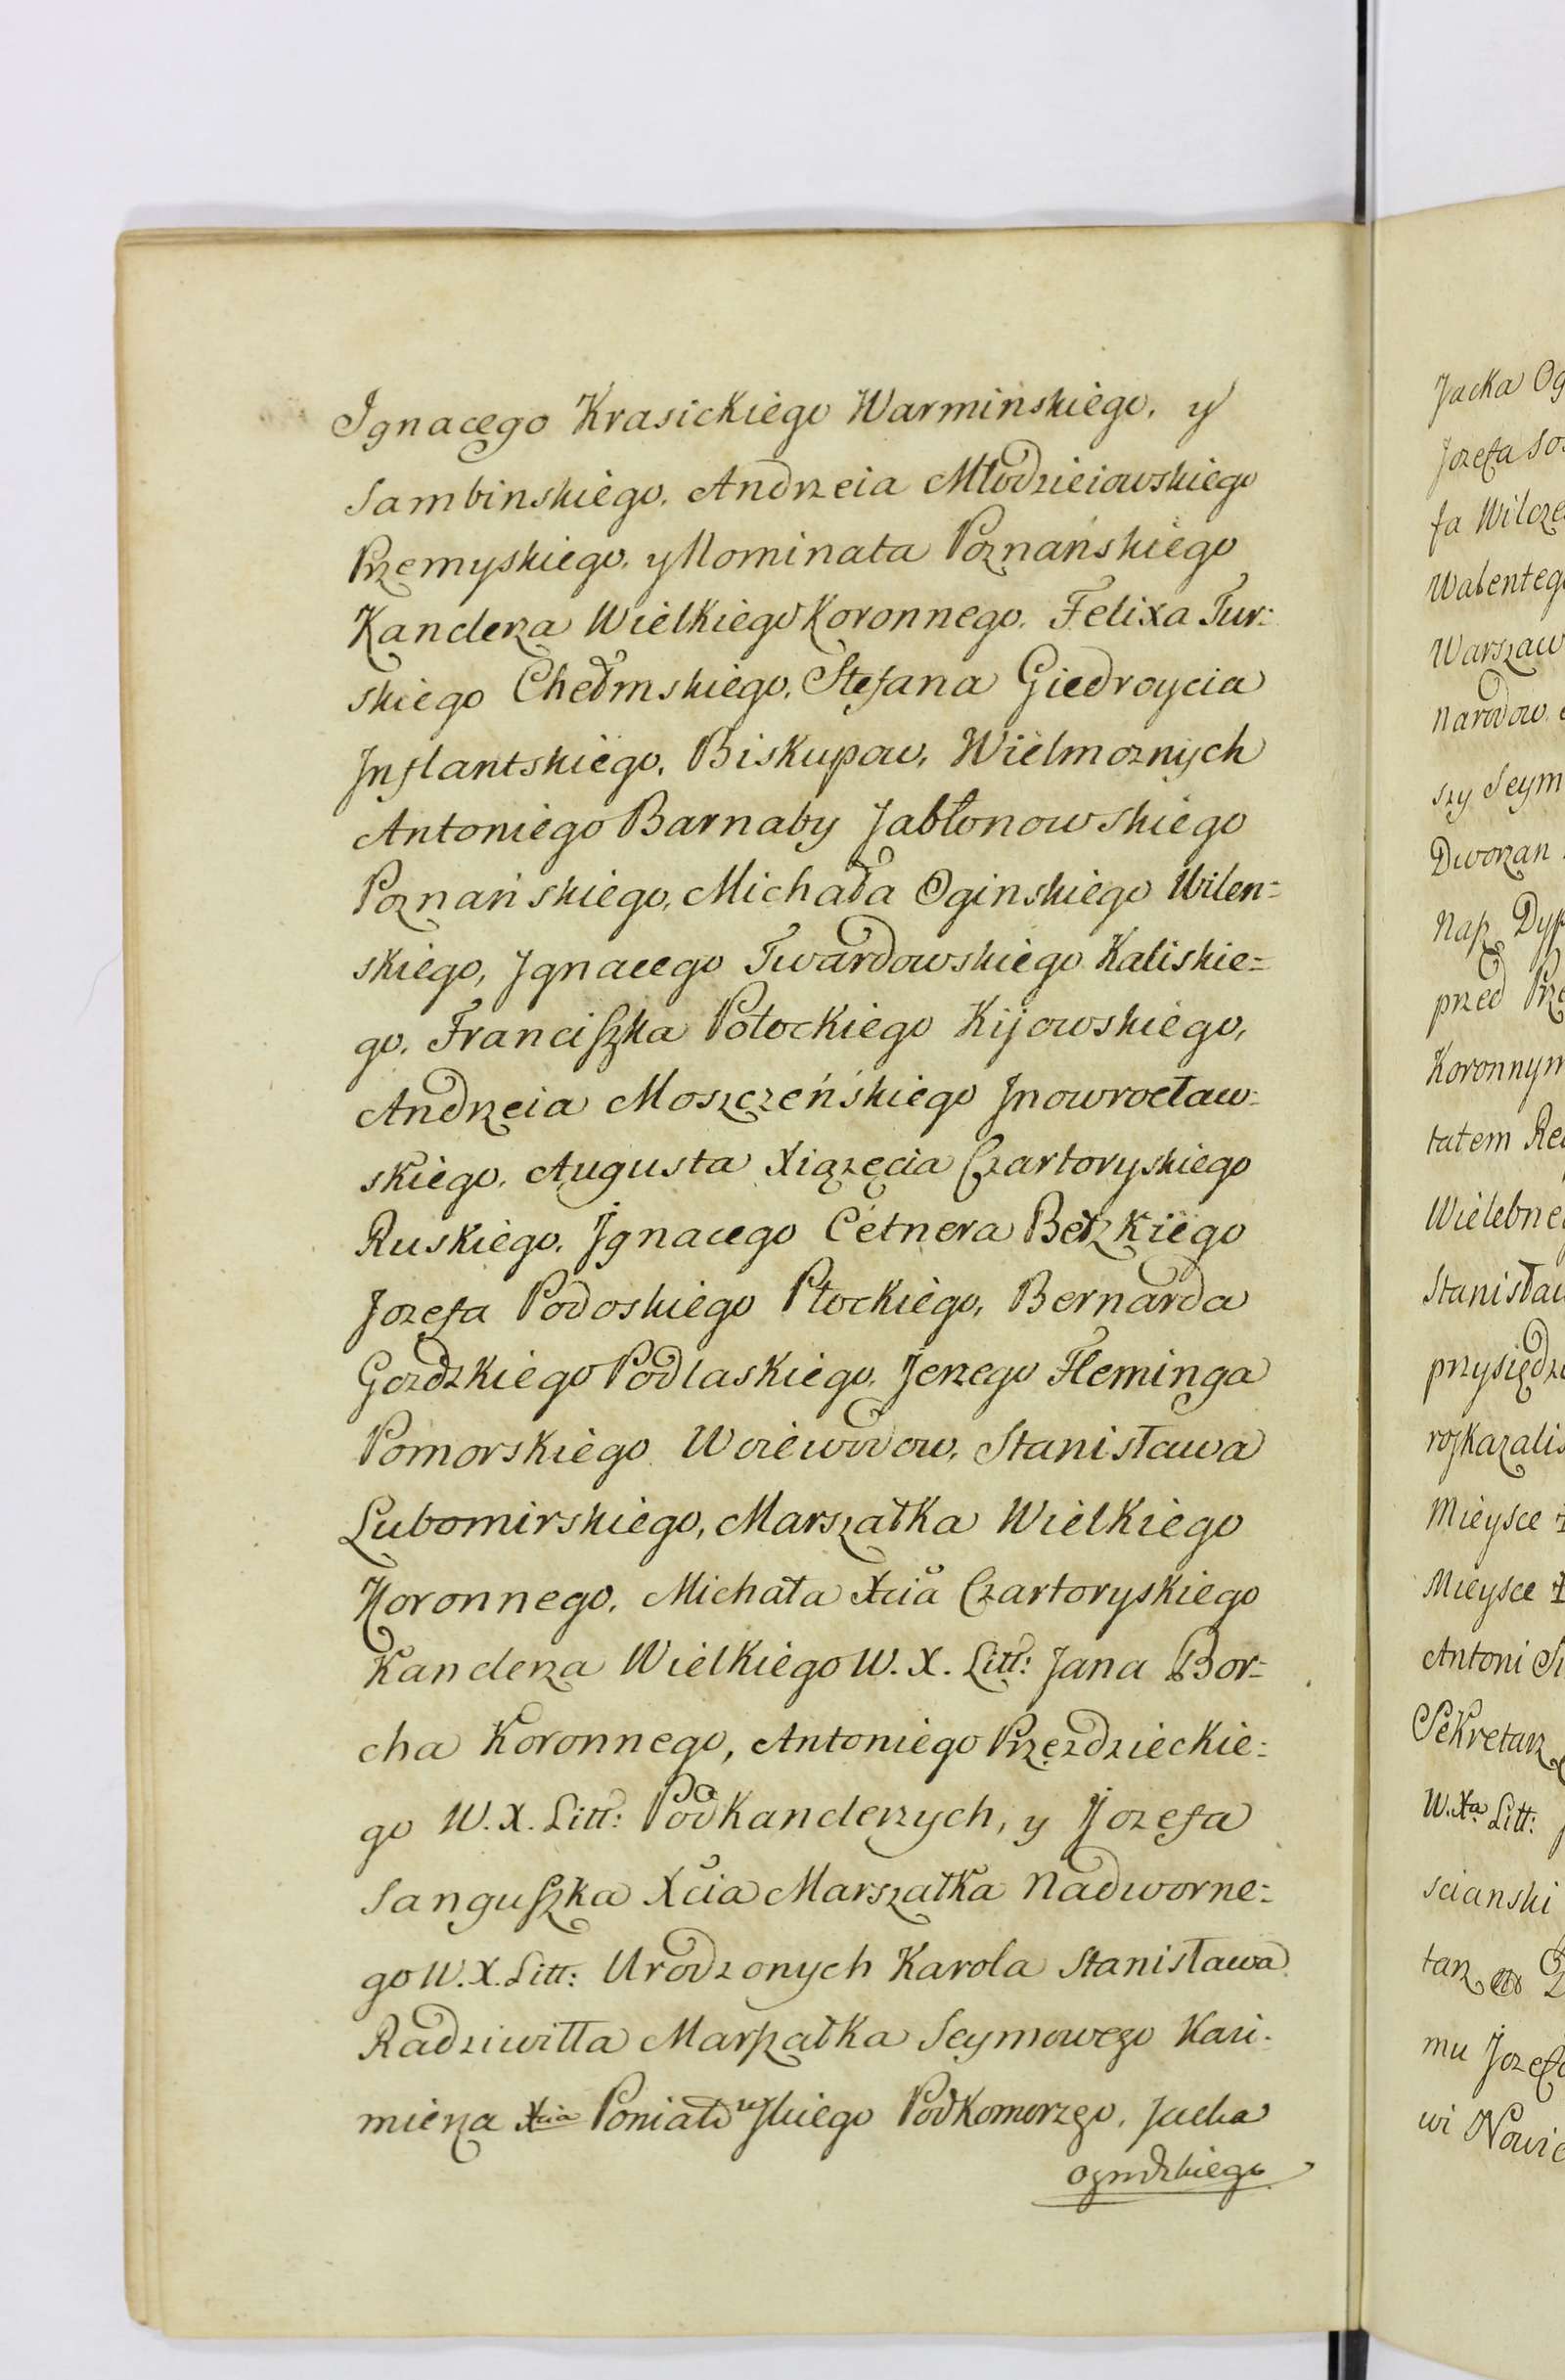 Ignacego Krasickiego Warminskiego, y
Sambinskiego, Andrzeia Młodzieiowskiego
Przemyskiego, y Nominata Poznańskiego
Kanclerza Wielkiego Koronnego. Felixa Tur:
skiego Chełmskiego, Stefana Giedroycia
Jnflantskiego, Biskupow, Wielmoznych
Antoniego Barnaby Jabłonowskiego
Poznańskiego, Michała Oginskiego Wilen=
skiego, Jgnacego Twardowskiego Kaliskie=
go, Franciszka Potockiego Kijowskiego,
Andrzeia Moszczeńskiego Jnowrocław:
skiego, Augusta Xiązęcia Czartoryskiego
Ruskiego, Jgnacego Cetnera Bełzkiego
Jozefa Podoskiego Płockiego, Bernarda
Gozdzkiego Podlaskiego, Jerzego Fleminga
Pomorskiego Woiewodow, Stanisława
Lubomirskiego, Marszałka Wielkiego
Koronnego, Michała Xcia Czartoryskiego
Kanclerza Wielkiego W. X. Litt: Jana Bor=
cha Koronnego, Antoniego Przezdzieckie:
go W. X. Litt: Podkanclerzych, y Jozefa
Sanguszka Xcia Marszałka Nadworne:
go W. X. Litt: Urodzonych Karola Stanisława
Radziwiłła Marszałka Seymowego Kazi:
mierza Xcia Poniatowskiego Podkomorzego, Jacka
Ogrodzkiego
Jacka Og
Jozefa Sos
fa Wilcze
Walenteg
Warszaw
Narodow
szy Seym
Dworzan
Nasz Dyp
przed Prze
Koronnym
tatem Re
Wielebne
Stanisław
przysiędz
roskazalis
Mieysce
Mieysce
Antoni
Sekretarz
W. Xa Litt:
scianski
tarz
mu Jozef
wi Nowie